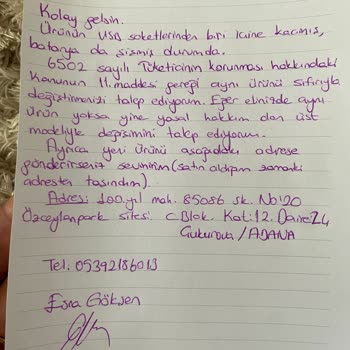 Kolay gelsin.
Ürünün USB soketlerinden biri içine kaçmış,
batarya da şişmiş durumda.
6502 sayılı Tüketicinin korunması hakkındaki
Kanunun 11. maddesi gereği aynı ürünü sıfırıyla
değiştirmenizi talep ediyorum. Eğer elinizde aynı
ürün yoksa yine yasal hakkım olan üst
modeliyle değişimini talep ediyorum.
Ayrıca yeni ürünü aşağıdaki adrese
gönderirseniz sevinirim (satın aldığım zamanki
adresten taşındım).
Adres: 100.yıl mah. 85086 sk. No:20
Özceylanpark sitesi. C Blok. Kat:12. Daire:24
Çukurova/ADANA
Tel: 05392186013
Esra Gökşen